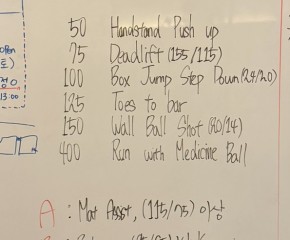 50 Handstand Push up
75 Deadlift (155/115)
100 Box Jump Step Down (24/20)
125 Toes to bar
150 Wall Ball Shot (20/14)
400 Run with Medicine Ball
13:00
A : Mat Assist, (115/75) 이상